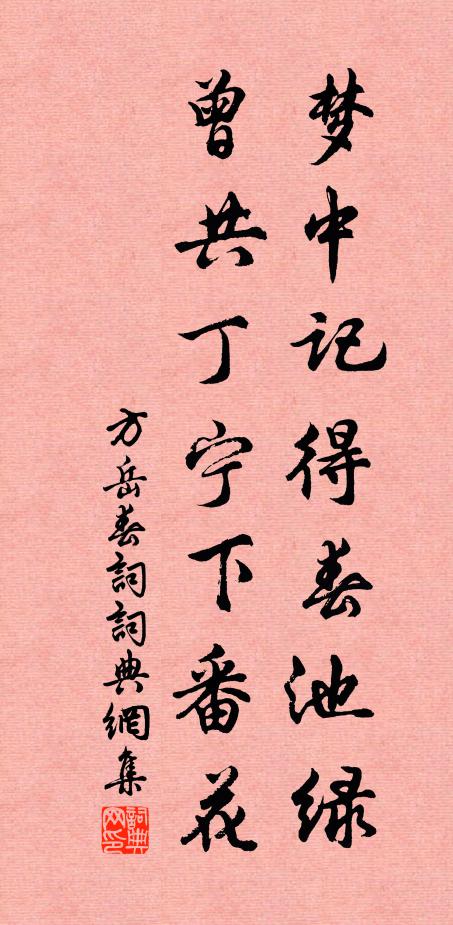 梦中记得春池绿
曾共丁宁下番花
方岳春詞詞典網集
詞典网印